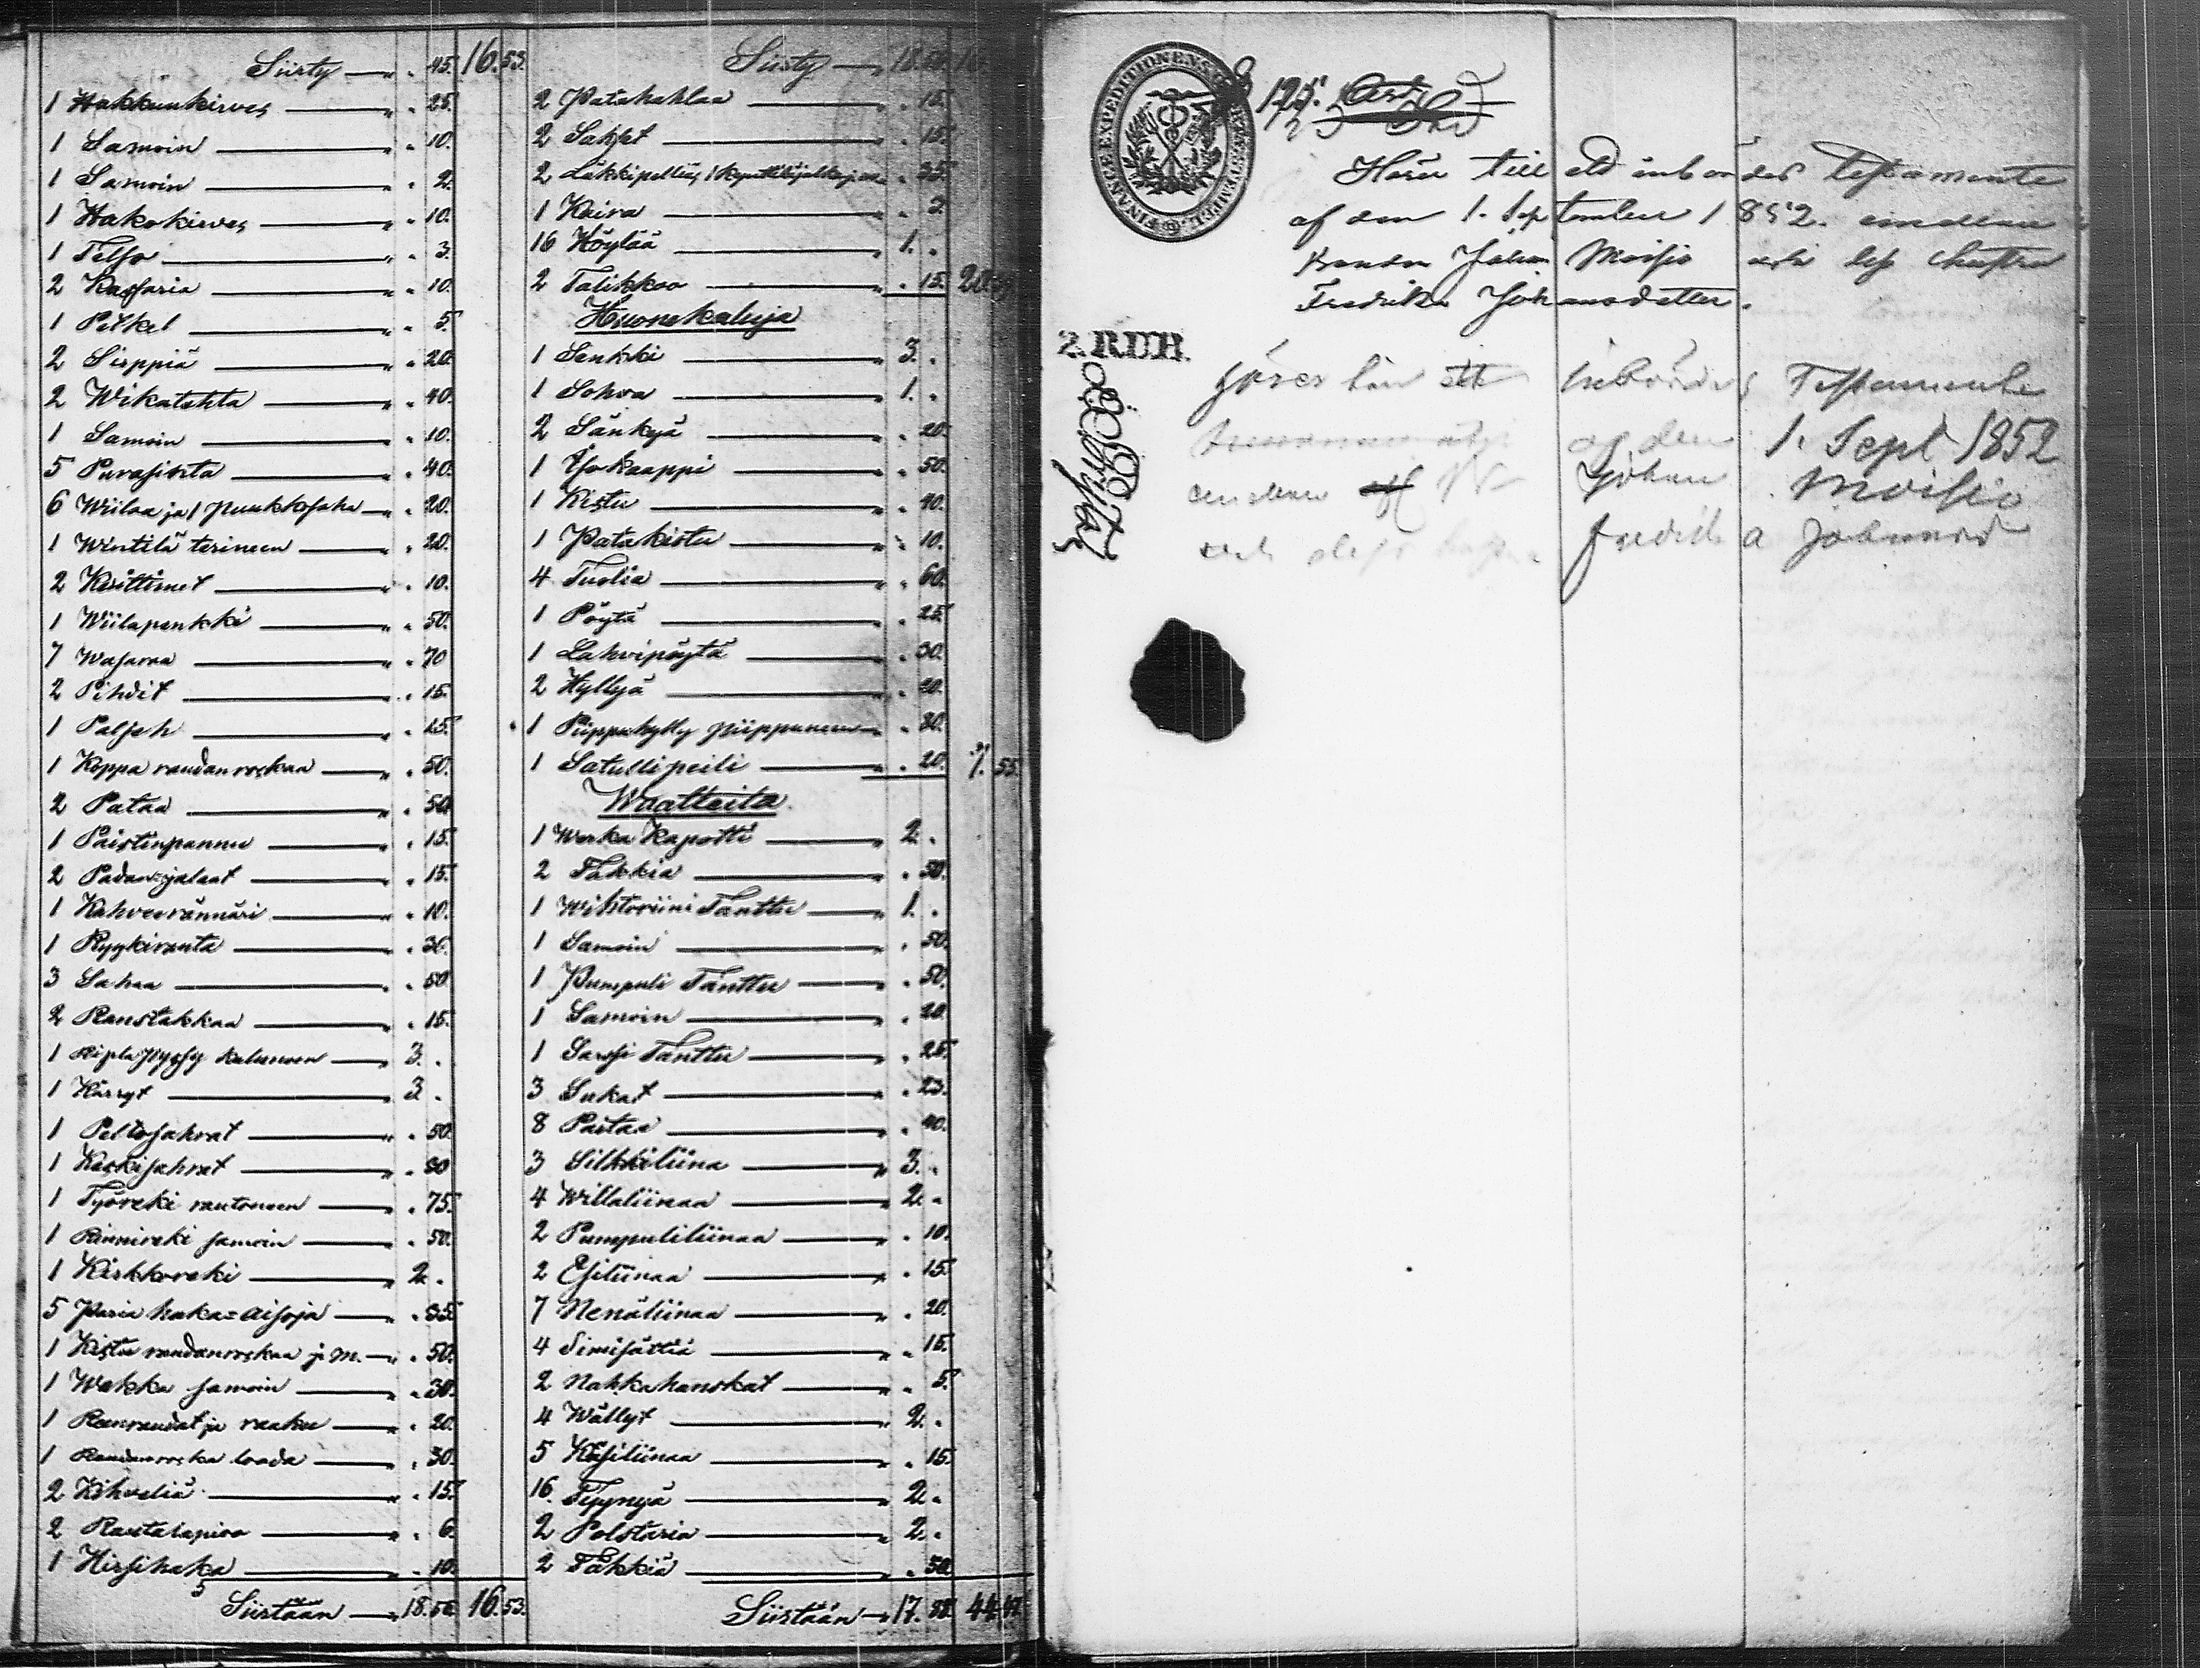 Siirty — „ 45. 16. 53.
1 Hakkuukirves — „ „ 25.
1 Samoin — „ „ 10.
1 Samoin — „ „ 2.
1 Hakokirves — „ „ 10.
1 Telso — „ „ 3.
2 Kassaria — „ „ 10.
1 Petkel — „ „ 5.
2 Sirppiä — „ „ 20.
2 Wikatehta — „ „ 40.
1 Samoin — „ „ 10.
5 Purasinta — „ „ 40.
6 Wiilaa ja 1 Puukkosaha — „ „ 20.
1 Wintilä terineen — „ „ 20.
2 Keritsimet — „ „ 10.
1 Wiilapenkki — „ „ 50.
7 Wasaraa — „ „ 70
2 Pihdit — „ „ 15.
1 Paljeh — „ „ 15.
1 Koppa raudanroskaa — „ „ 50.
2 Pataa — „ „ 50.
1 Paistinpannu — „ „ 15.
2 Padan=jalaat — „ „ 15.
1 Kahveerännäri — „ „ 10.
1 Ryykirauta — „ „ 30.
3 Sahaa — „ „ 50.
2 Raustakkaa — „ „ 15.
1 Ripla Pyssy kaluneen — „ 3. „
1 Kärryt — „ 3 „
1 Peltosahrat — „ „ 50.
1 Keskisahrat — „ „ 30
1 Työreki rautoneen — „ „ 75.
1 Rännireki samoin — „ „ 50.
1 Kirkkoreki — „ 2. „
5 Paria haka=aisoja — „ „ 35.
1 Kistu raudanroskaa j. m. — „ „ 50.
1 Wakka samoin — „ „ 30.
1 Reenraudat ja raaku — „ „ 20.
1 Raudanroska loada — „ „ 30.
2 Kihveliä — „ „ 15.
2 Rautalapioo — „ „ 6.
1 Hirsihaka — „ „ 10.
Siirtään — „ 18. 56. 16. 53.
Siirty — „ 18. 56. 16
2 Patahahlaa — „ „ 15.
2 Sakset — „ „ 15.
2 Läkkipelliä, 1 Kynttiläjalka — „ „ 35.
1 Kaira — „ „ 3.
16 Höylää — 1. „
2 Talikkoo — „ „ 15. 20.
Huonekaluja
1 Senkki — „ 3. „
1 Sohva — „ 1. „
2 Sänkyä — „ „ 20.
1 Iso kaappi — „ „ 50.
1 Kistu — „ „ 40.
1 Patakistu — „ „ 10.
4 Tuolia — „ „ 60.
1 Pöytä — „ „ 25.
1 Lahvipöytä — „ „ 30.
2 Hyllyä — „ „ 20.
1 Piippuhylly piippuneen — „ „ 30.
1 Satullipeili — „ „ 20. 7. 55.
Waatteita.
1 Werka Kapotti — „ 2. „
2 Takkia — „ „ 50.
1 Wiktoriini Tänttu — „ 1. „
1 Samoin — „ „ 50.
1 Pumpuli Tänttu — „ „ 50.
1 Samoin — „ „ 20.
1 Sarssi Tänttu — „ „ 25.
3 Sukat — „ „ 23.
8 Paitaa — „ „ 40.
3 Silkkiliina — „ 3. „
4 Willaliinaa — „ 2. „
2 Pumpuliliinaa — „ „ 10.
2 Esiliinaa — „ „ 15.
7 Nenäliinaa — „ „ 20.
4 Simisättiä — „ „ 15.
2 Nahkahanskat — „ „ 5.
4 Wällyt — „ 2. „
5 Käsiliinaa — „ „ 15.
16. Tyynyä — „ 2. „
2 Polstaria — „ 2. „
2 Täkkiä — „ „ 50.
Siirtään — „ 17. 58. 44.
FINANCE EXPEDITIONENS
125.
Hörer till ett inbördes testamente
af den 1. September 1852. emellan
Bonden Johan Moisio och dess hustru
Fredrika Johansdotter.
2. RUB.
Inbördes Testamente
af den 1. Sept 1852
emellan Johan Moisio
och dess Fredrika Johansd